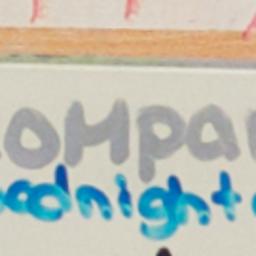 ompa
odnight